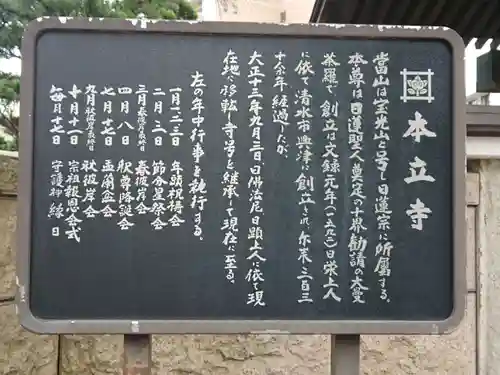 本立寺
當山は宝光山と号し日蓮宗に所屬する。
本尊は日蓮聖人奠定の十界勧請の大曼
荼羅で、創立は文録元年(一五九三)日栄上人
に依て清水市興津に創立され、尓来三百三
十余年経過したが、
大正十三年九月三日日佛法尼日顕上人に依て現
在地に移転し寺号を継承して現在に至る。
左の年中行事を執行する。
一月一二三日 年頭祝祷会
二月三日 節分星祭会
三月春彼岸の入中日終日 春彼岸会
四月八日 釈尊降誕会
七月十七日 盂蘭盆会
九月秋彼岸の入中日終日 秋彼岸会
十月十一日 宗祖報恩会式
毎月十七日 守護神縁日